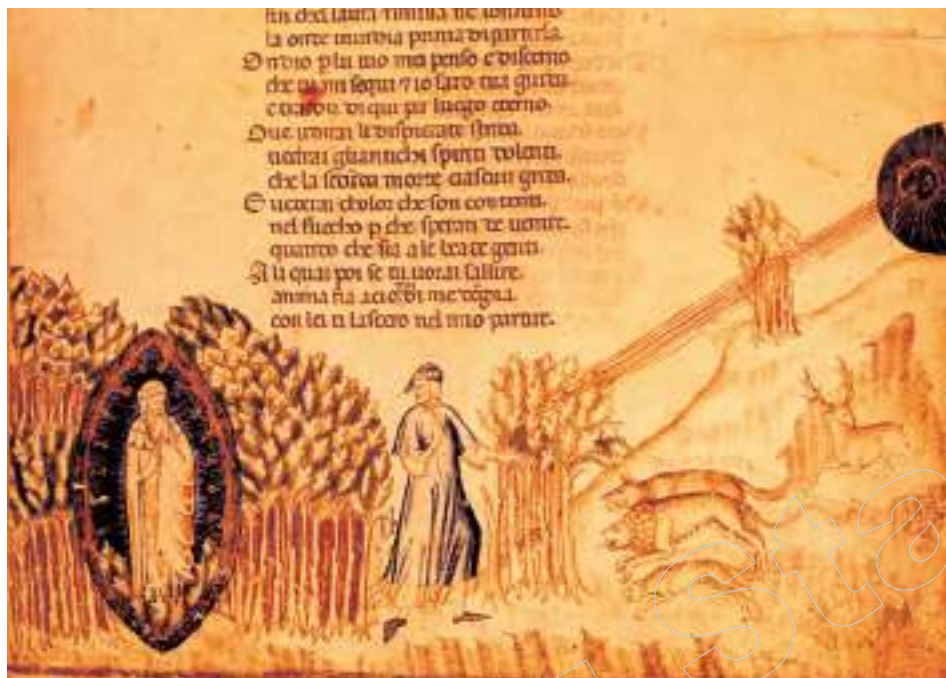 la onde inuidia prima dipartila
Ondio p lu tuo mei penso e discerno
che tu mi segui 7 io saro tua guida
di qui per luogo eterno
Oue udirai le disperate strida
uedrai gliantichi spiriti dolenti
che la seconda morte ciascun grida
E uederai cholor che son contenti
nel fuocho p che speran de uenire
quando che sia a le beate genti
A li quai poi se tu uorai salire
anima fia a cio di me degna
con lei ti lascero nel mio partire
Sta